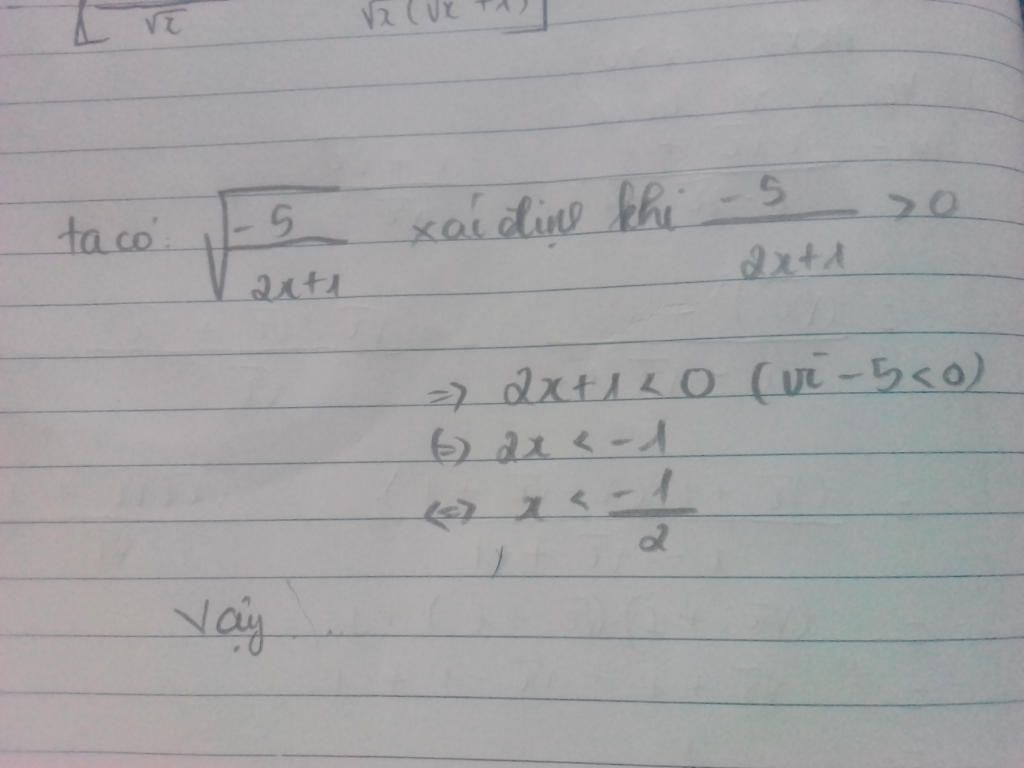 √x √x(√x+1)
ta có: √(-5/(2x+1)) xác định khi -5/(2x+1) > 0
=> 2x+1 < 0 (vì -5 < 0)
<=> 2x < -1
<=> x < -1/2
Vậy ...